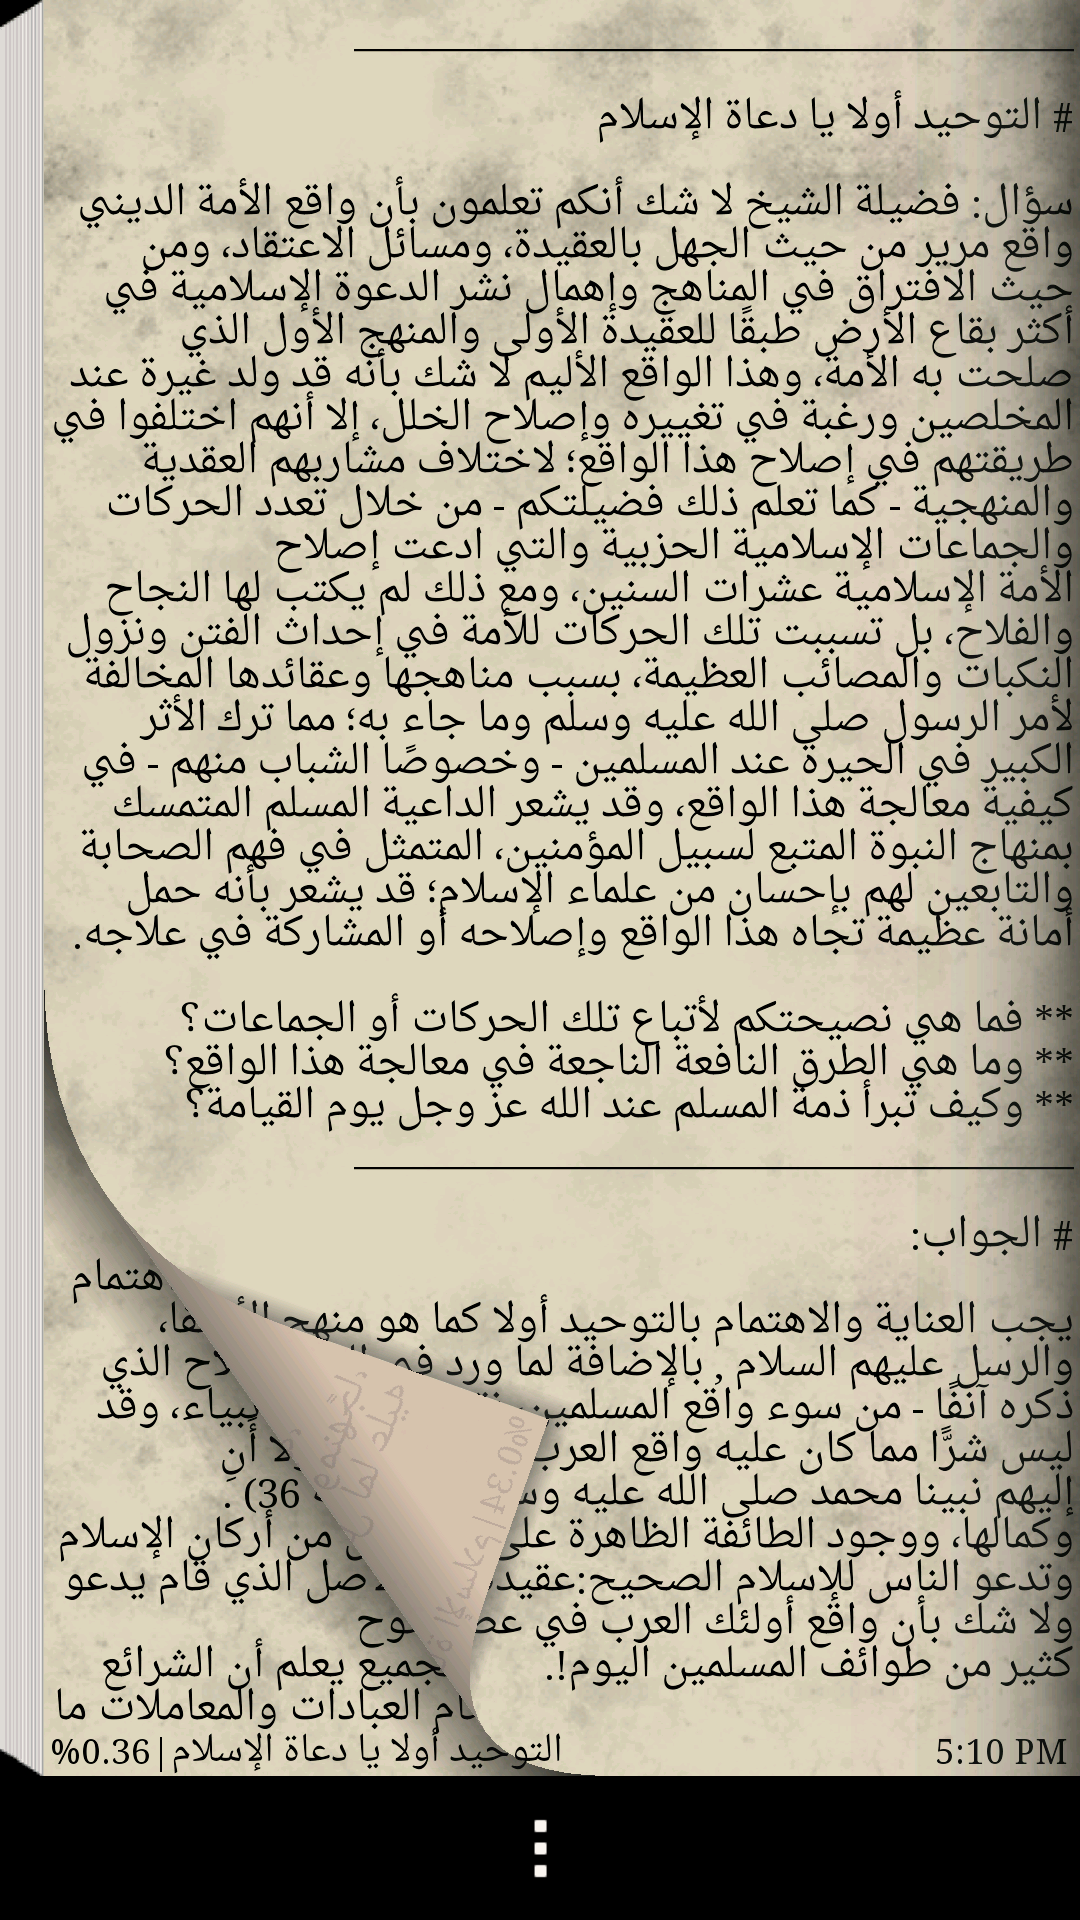 # التوحيد أولا يا دعاة الإسلام
سؤال: فضيلة الشيخ لا شك أنكم تعلمون بأن واقع الأمة الديني
واقع مرير من حيث الجهل بالعقيدة، ومسائل الاعتقاد، ومن
حيث الافتراق في المناهج وإهمال نشر الدعوة الإسلامية في
أكثر بقاع الأرض طبقًا للعقيدة الأولى والمنهج الأول الذي
صلحت به الأمة، وهذا الواقع الأليم لا شك بأنه قد ولد غيرة عند
المخلصين ورغبة في تغييره وإصلاح الخلل، إلا أنهم اختلفوا في
طريقتهم في إصلاح هذا الواقع؛ لاختلاف مشاربهم العقدية
والمنهجية - كما تعلم ذلك فضيلتكم - من خلال تعدد الحركات
والجماعات الإسلامية الحزبية والتي ادعت إصلاح
الأمة الإسلامية عشرات السنين، ومع ذلك لم يكتب لها النجاح
والفلاح، بل تسببت تلك الحركات للأمة في إحداث الفتن ونزول
النكبات والمصائب العظيمة، بسبب مناهجها وعقائدها المخالفة
لأمر الرسول صلي الله عليه وسلم وما جاء به؛ مما ترك الأثر
الكبير في الحيرة عند المسلمين - وخصوصًا الشباب منهم - في
كيفية معالجة هذا الواقع، وقد يشعر الداعية المسلم المتمسك
بمنهاج النبوة المتبع لسبيل المؤمنين، المتمثل في فهم الصحابة
والتابعين لهم بإحسان من علماء الإسلام؛ قد يشعر بأنه حمل
أمانة عظيمة تجاه هذا الواقع وإصلاحه أو المشاركة في علاجه.
** فما هي نصيحتكم لأتباع تلك الحركات أو الجماعات؟
** وما هي الطرق النافعة الناجعة في معالجة هذا الواقع؟
** وكيف تبرأ ذمة المسلم عند الله عز وجل يوم القيامة؟
# الجواب:
يجب العناية والاهتمام بالتوحيد أولا كما هو منهج
والرسل عليهم السلام , بالإضافة لما ورد الذي
ذكره آنفًا - من سوء واقع المسلمين وقد
ليس شرًّا مما كان عليه واقع العرب أن
إليهم نبينا محمد صلى الله عليه 36) .
وكمالها، ووجود الطائفة الظاهرة على من أركان الإسلام
وتدعو الناس للإسلام الصحيح: الذي قام يدعو
ولا شك بأن واقع أولئك العرب في
كثير من طوائف المسلمين اليوم!. يعلم أن الشرائع
العبادات والمعاملات ما
5:10 PM التوحيد أولا يا دعاة الإسلام|0.36%